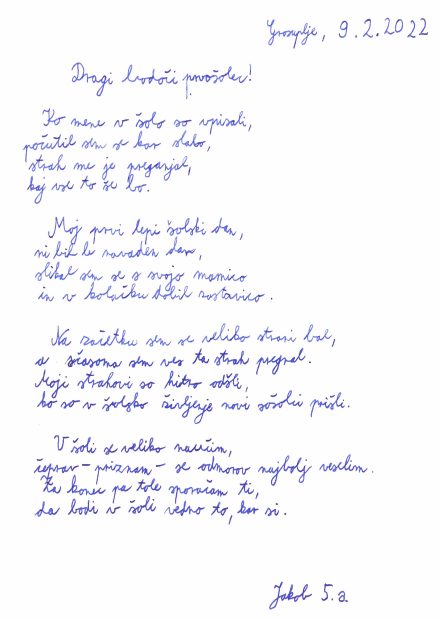 Grosuplje, 9.2.2022
Dragi bodoči prvošolec!
Ko mene v šolo so vpisali,
počutil sem se kar slabo,
strah me je preganjal,
kaj vse to še bo.
Moj prvi lepi šolski dan,
ni bil le navaden dan,
slikal sem se s svojo mamico
in v kolačku dobil zastavico.
Na začetku sem se veliko stvari bal,
a sčasoma sem ves ta strah pregnal.
Moji strahovi so hitro odšli,
ko so v šolsko življenje novi sošolci prišli.
V šoli se veliko naučim,
čeprav - priznam - se odmorov najbolj veselim.
Za konec pa tole sporočam ti,
da bodi v šoli vedno to, kar si.
Jakob 5.a